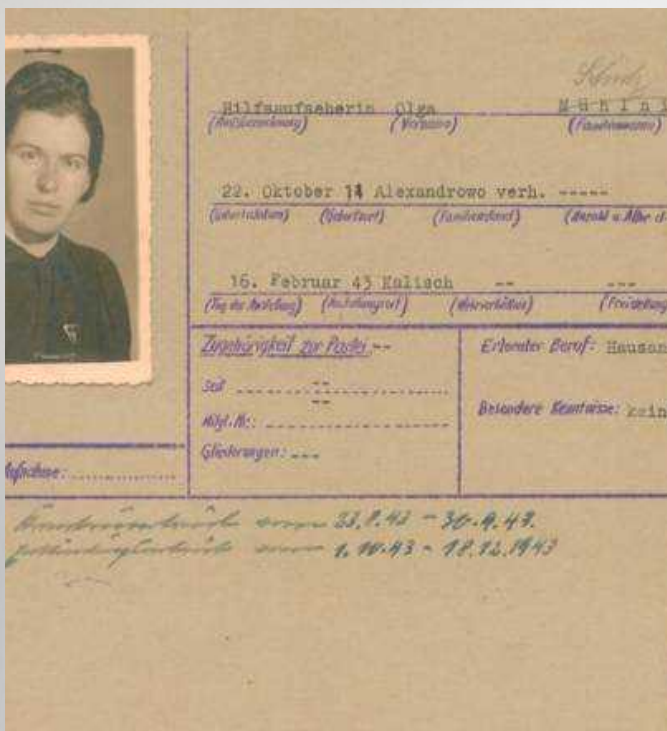 Hilfsaufseherin Olga M ü h l n
(Amtsbezeichnung) (Vorname) (Familienname)
22. Oktober 14 Alexandrowo verh. -----
(Geburtsdatum) (Geburtsort) (Familienstand) (Anzahl u. Alter d.
16. Februar 43 Kalisch -- ---
(Tag der Anstellung) (Anstellungsort) (Wehrverhältnis)
Zugehörigkeit zur Partei: --
Seit --
Mitgl. Nr.: --
Gliederungen: ---
Erlernter Beruf: Hausan
Besondere Kenntnisse: kein
Aufnahme:
vom 23.8.43 - 30.9.43.
vom 1.10.43 - 18.12.1943